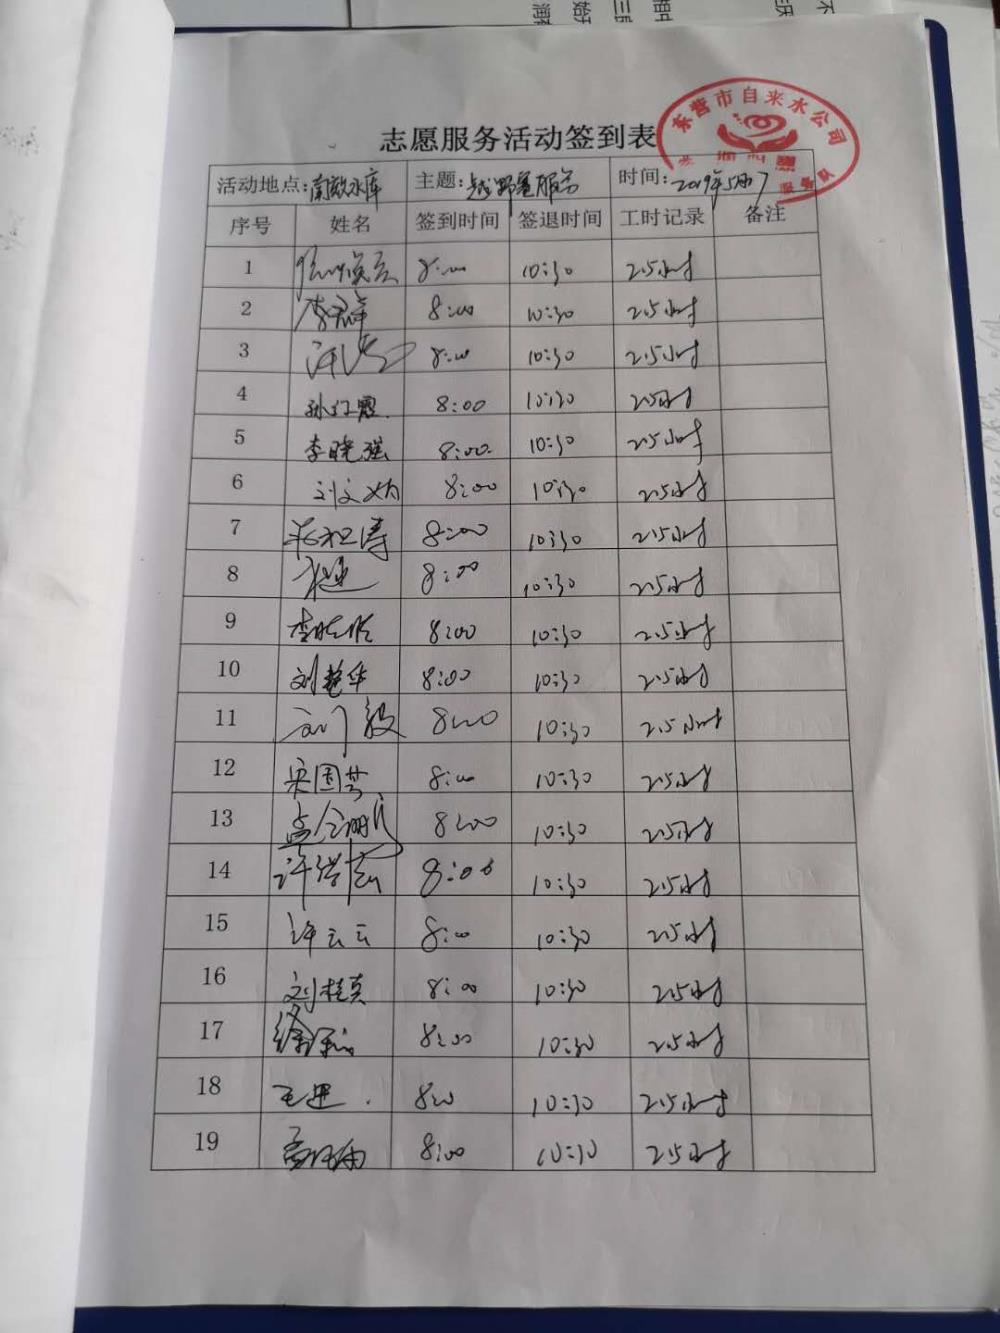 志愿服务活动签到表
东营市自来水公司
活动地点：南郊水库 主题：越野赛服务 时间：2019年5月7
序号 姓名 签到时间 签退时间 工时记录 备注
1 8:00 10:30 2.5小时
2 8:00 10:30 2.5小时
3 8:00 10:30 2.5小时
4 孙红霞 8:00 10:30 2.5小时
5 李晓强 8:00 10:30 2.5小时
6 刘文娟 8:00 10:30 2.5小时
7 8:00 10:30 2.5小时
8 8:00 10:30 2.5小时
9 8:00 10:30 2.5小时
10 刘艳华 8:00 10:30 2.5小时
11 8:00 10:30 2.5小时
12 宋国芳 8:00 10:30 2.5小时
13 8:00 10:30 2.5小时
14 8:00 10:30 2.5小时
15 许云云 8:00 10:30 2.5小时
16 刘桂真 8:00 10:30 2.5小时
17 8:00 10:30 2.5小时
18 王进 8:00 10:30 2.5小时
19 8:00 10:30 2.5小时